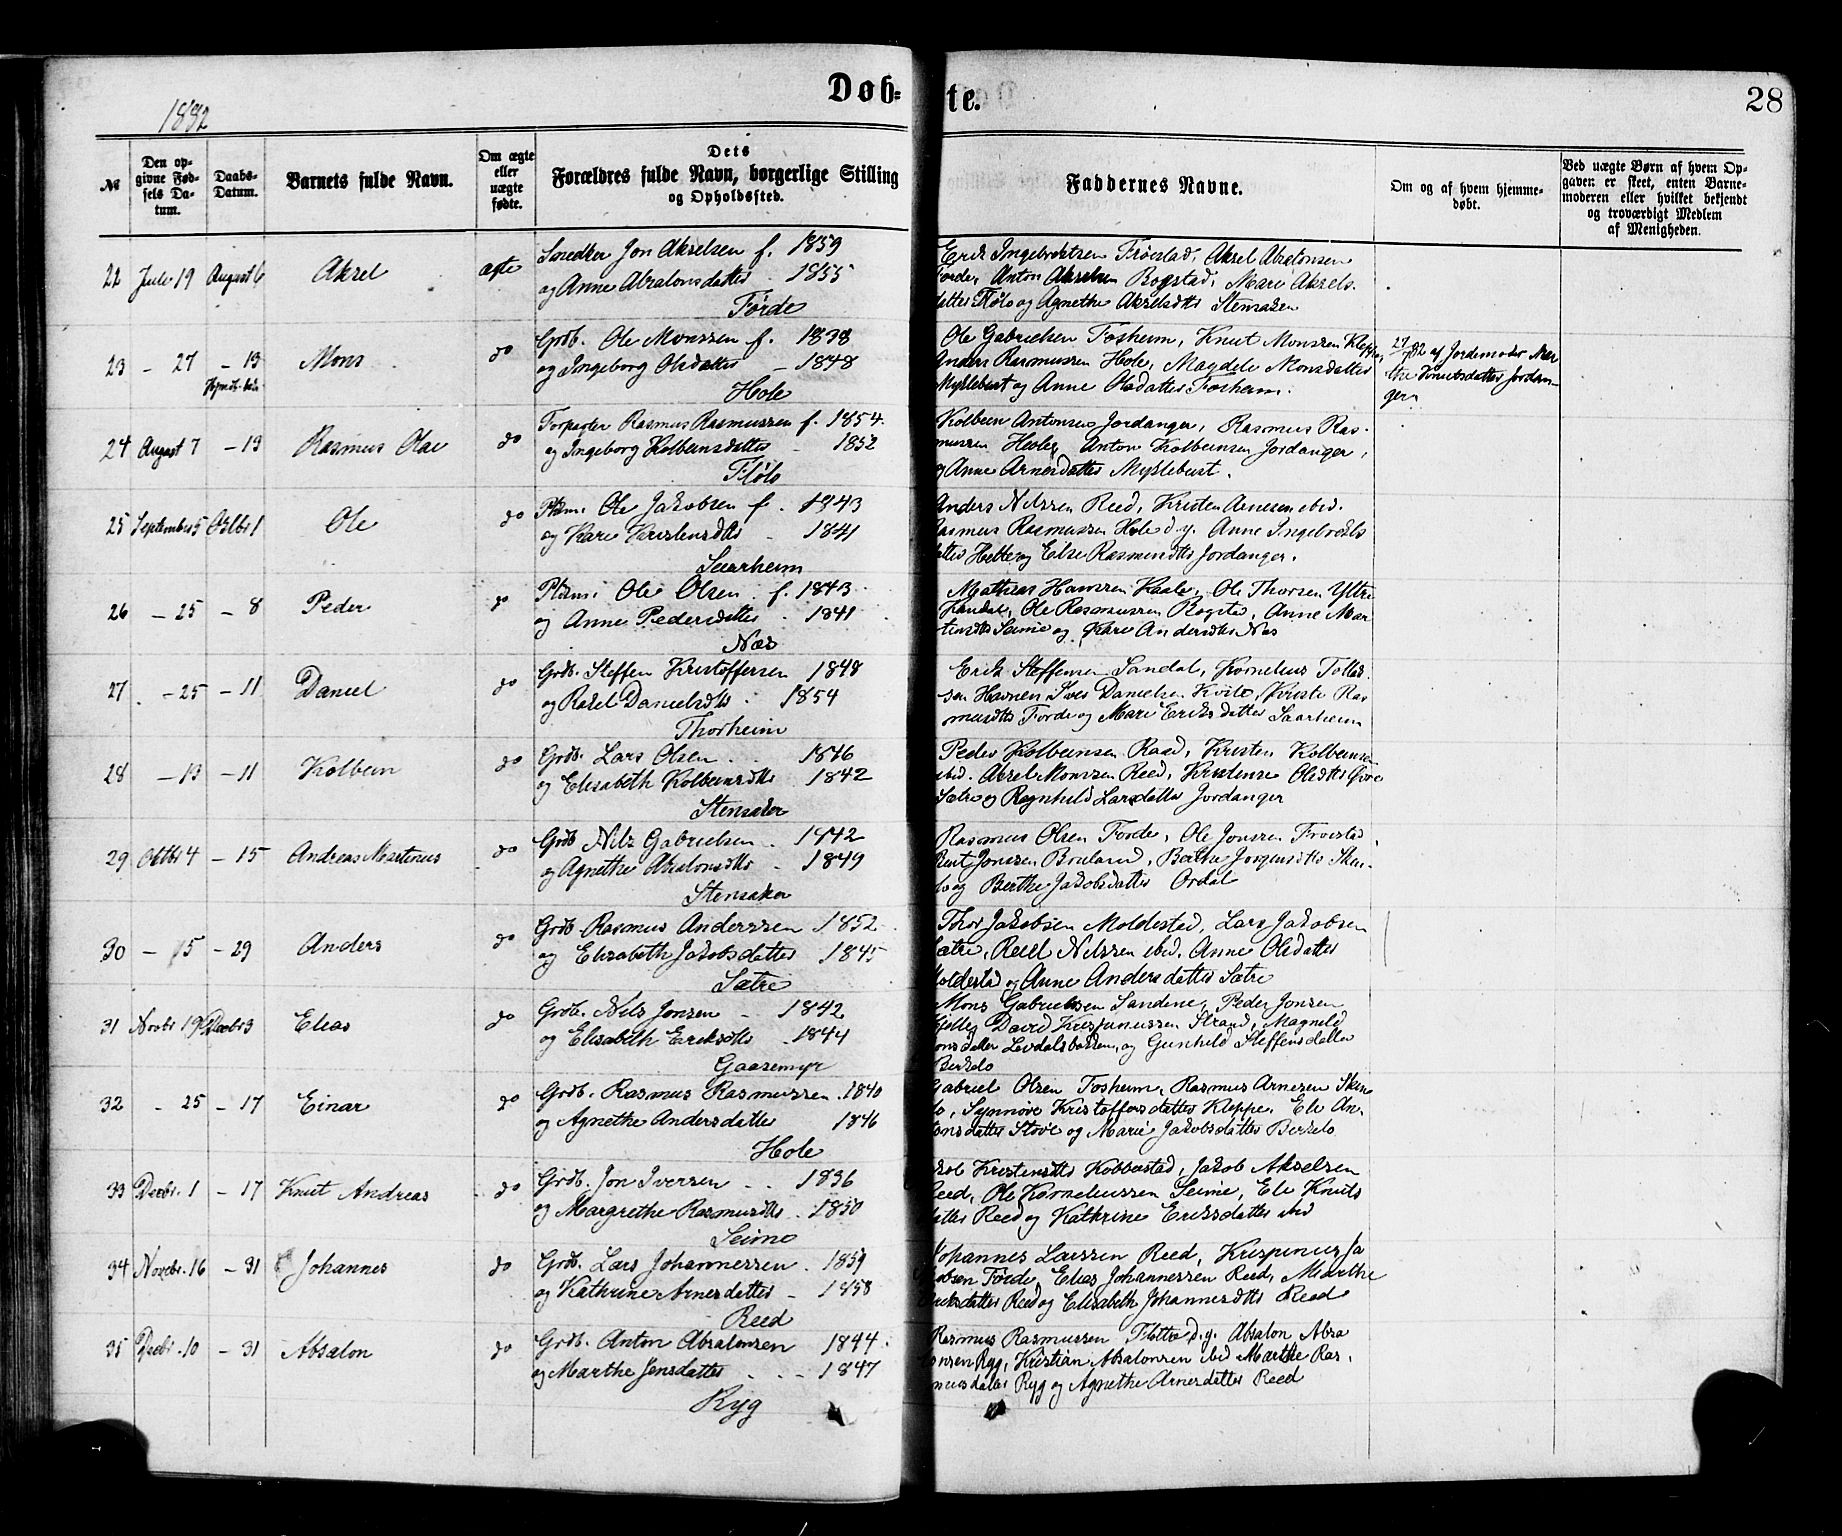 Døb=
te.
28
1882
№
Den op-
givne Fød-
sels Da-
tum.
Daabs-
Datum.
Barnets fulde Navn.
Om ægte
eller
uægte
fødte.
Dets
Forældres fulde Navn, borgerlige Stilling
og Opholdssted.
Faddernes Navne.
Om og af hvem hjemme-
døbt.
Ved uægte Børn af hvem Op-
gaven er skeet, enten Barne-
moderen eller hvilket bekjendt
og troværdigt Medlem
af Menigheden.
22 Juli 19 August 6 Aksel ægte
Snedker Jon Akselsen f. 1859
og Anne Absalonsdatter 1855
Førde
Erik Ingebretsen Frøestad, Aksel Absalonsen
Førde, Anton Akselsen Rogstad, Mari Aksels-
datter Flølo og Agnethe Akselsdttr Stensaker
23 - 27 - 13 Mons do
Grdb. Ole Monssen f. 1838
og Ingeborg Olsdatter - 1848
Hole
Ole Gabrielsen Fosheim, Knut Monssen Kleppe,
Anders Rasmussen Hole, Magdele Monsdatter
Myklebust og Anne Olsdatter Fosheim.
27/7 82 af Jordemoder Mar
the Knutsdatter Jordan-
ger
24 August 7 - 13 Rasmus Olai do
Forpagter Rasmus Rasmussen f. 1854.
og Ingeborg Kolbeinsdatter - 1852
Flølo
Kolbein Antonsen Jordanger, Rasmus Ras-
mussen Hevle, Anton Kolbeinsen Jordanger,
og Anne Arnesdatter Myklebust.
25 September 5 Oktbr 1 Ole do
Pldsm. Ole Jakobsen f. 1843
og Kari Kristensdtter - 1841
Saarheim
Anders Nilssen Reed, Kristen Arnesen ibid.
Rasmus Rasmussen Hole d.y. Anne Ingebrekts
datter Hetle og Elise Rasmusdtter Jordanger.
26 - 25 - 8 Peder do
Pldsm. Ole Olsen f. 1843
og Anne Pedersdatter . 1841
Næs
Mathias Hanssen Hole, Ole Thorsen Ytre
Handal, Ole Rasmussen Rogstad, Anne Mar
tinsdtter Seime og Kari Andersdtter Næs
27 - 25 - 11 Daniel do
Grdb. Steffen Kristoffersen 1848
og Rakel Danielsdtter . 1854
Thorheim
Erik Steffensen Sandal, Kornelius Tollef
sen Havnen, Iver Danielsen Kvile, Kristi Ras
musdtter Førde og Mari Eriksdatter Saarheim
28 - 13 - 11 Kolbein do
Grdb. Lars Olsen . . 1846
og Elisabeth Kolbeinsdtter 1842
Stensaker
Peder Kolbeinsen Raad, Kristen Kolbeinsen
ibid. Aksel Monssen Reed, Kristense Olsdtter Øvre
Sætre og Ragnhild Larsdatter Jordanger
29 Oktbr 4 - 15 Andreas Martinus do
Grdb Nils Gabrielsen . 1842
og Agnethe Absalonsdtter - 1849
Stensaker
Rasmus Olsen Førde, Ole Jonssen Frøestad,
Bent Jonssen Bruland, Berthe Jørgensdtter Sken-
lo og Berthe Jakobsdatter Ordal
30 - 15 - 29 Anders do
Grdb. Rasmus Anderssen 1852
og Elisabeth Jakobsdatter 1845
Sætre
Thor Jakobsen Moldestad, Lars Jakobsen
Sætre, Reiel Nilssen ibid. Anne Olsdatter
Moldestad og Anne Andersdatter Sætre
31 Novbr 19 Decbr 3 Elias do
Grdb. Nils Jonsen - 1842
og Elisabeth Eriksdtter . 1844
Gaasemyr
Mons Gabrielsen Sandene, Peder Jonsen
David Krispinussen Strand, Magnild
Monsdatter Levdalsbotten, og Gunhild Steffensdatter
Berkelo
32 . 25 - 17 Einar do
Grdb. Rasmus Rasmussen . 1840
og Agnethe Andersdatter 1846
Hole
Gabriel Olsen Fosheim, Rasmus Arnesen Sken
lo, Synnøve Kristoffersdatter Kleppe, Eli An-
tonsdatter Støve og Mari Jakobsdatter Berkelo
33 Decbr. 1 - 17 Knut Andreas do
Grdb. Jon Iversen . . 1836
og Margrethe Rasmusdtter . 1850
Seime
Kristensdtter Kobbestad, Jakob Akselsen
Reed, Ole Korneliussen Seime, Eli Knuts
datter Reed og Kathrine Eriksdatter ibid
34 Novbr. 16 - 31 Johannes do
Grdb. Lars Johannessen . 1859
og Kathrine Arnesdatter - 1858
Reed
Johannes Larssen Reed, Krispinus Ja
kobsen Førde, Elias Johannessen Reed, Marthe
Eriksdatter Reed og Elisabeth Johannesdtter Reed
35 Decbr. 10 - 31 Absalon do
Grdb. Anton Absalonsen 1844.
og Marthe Jensdatter . . - 1847
Ryg
Rasmus Rasmussen Fløtre d.y. Absalon Absa
lonsen Ryg, Kristian Absalonsen ibid Marthe Ras-
musdatter Ryg og Agnethe Arnesdatter Reed